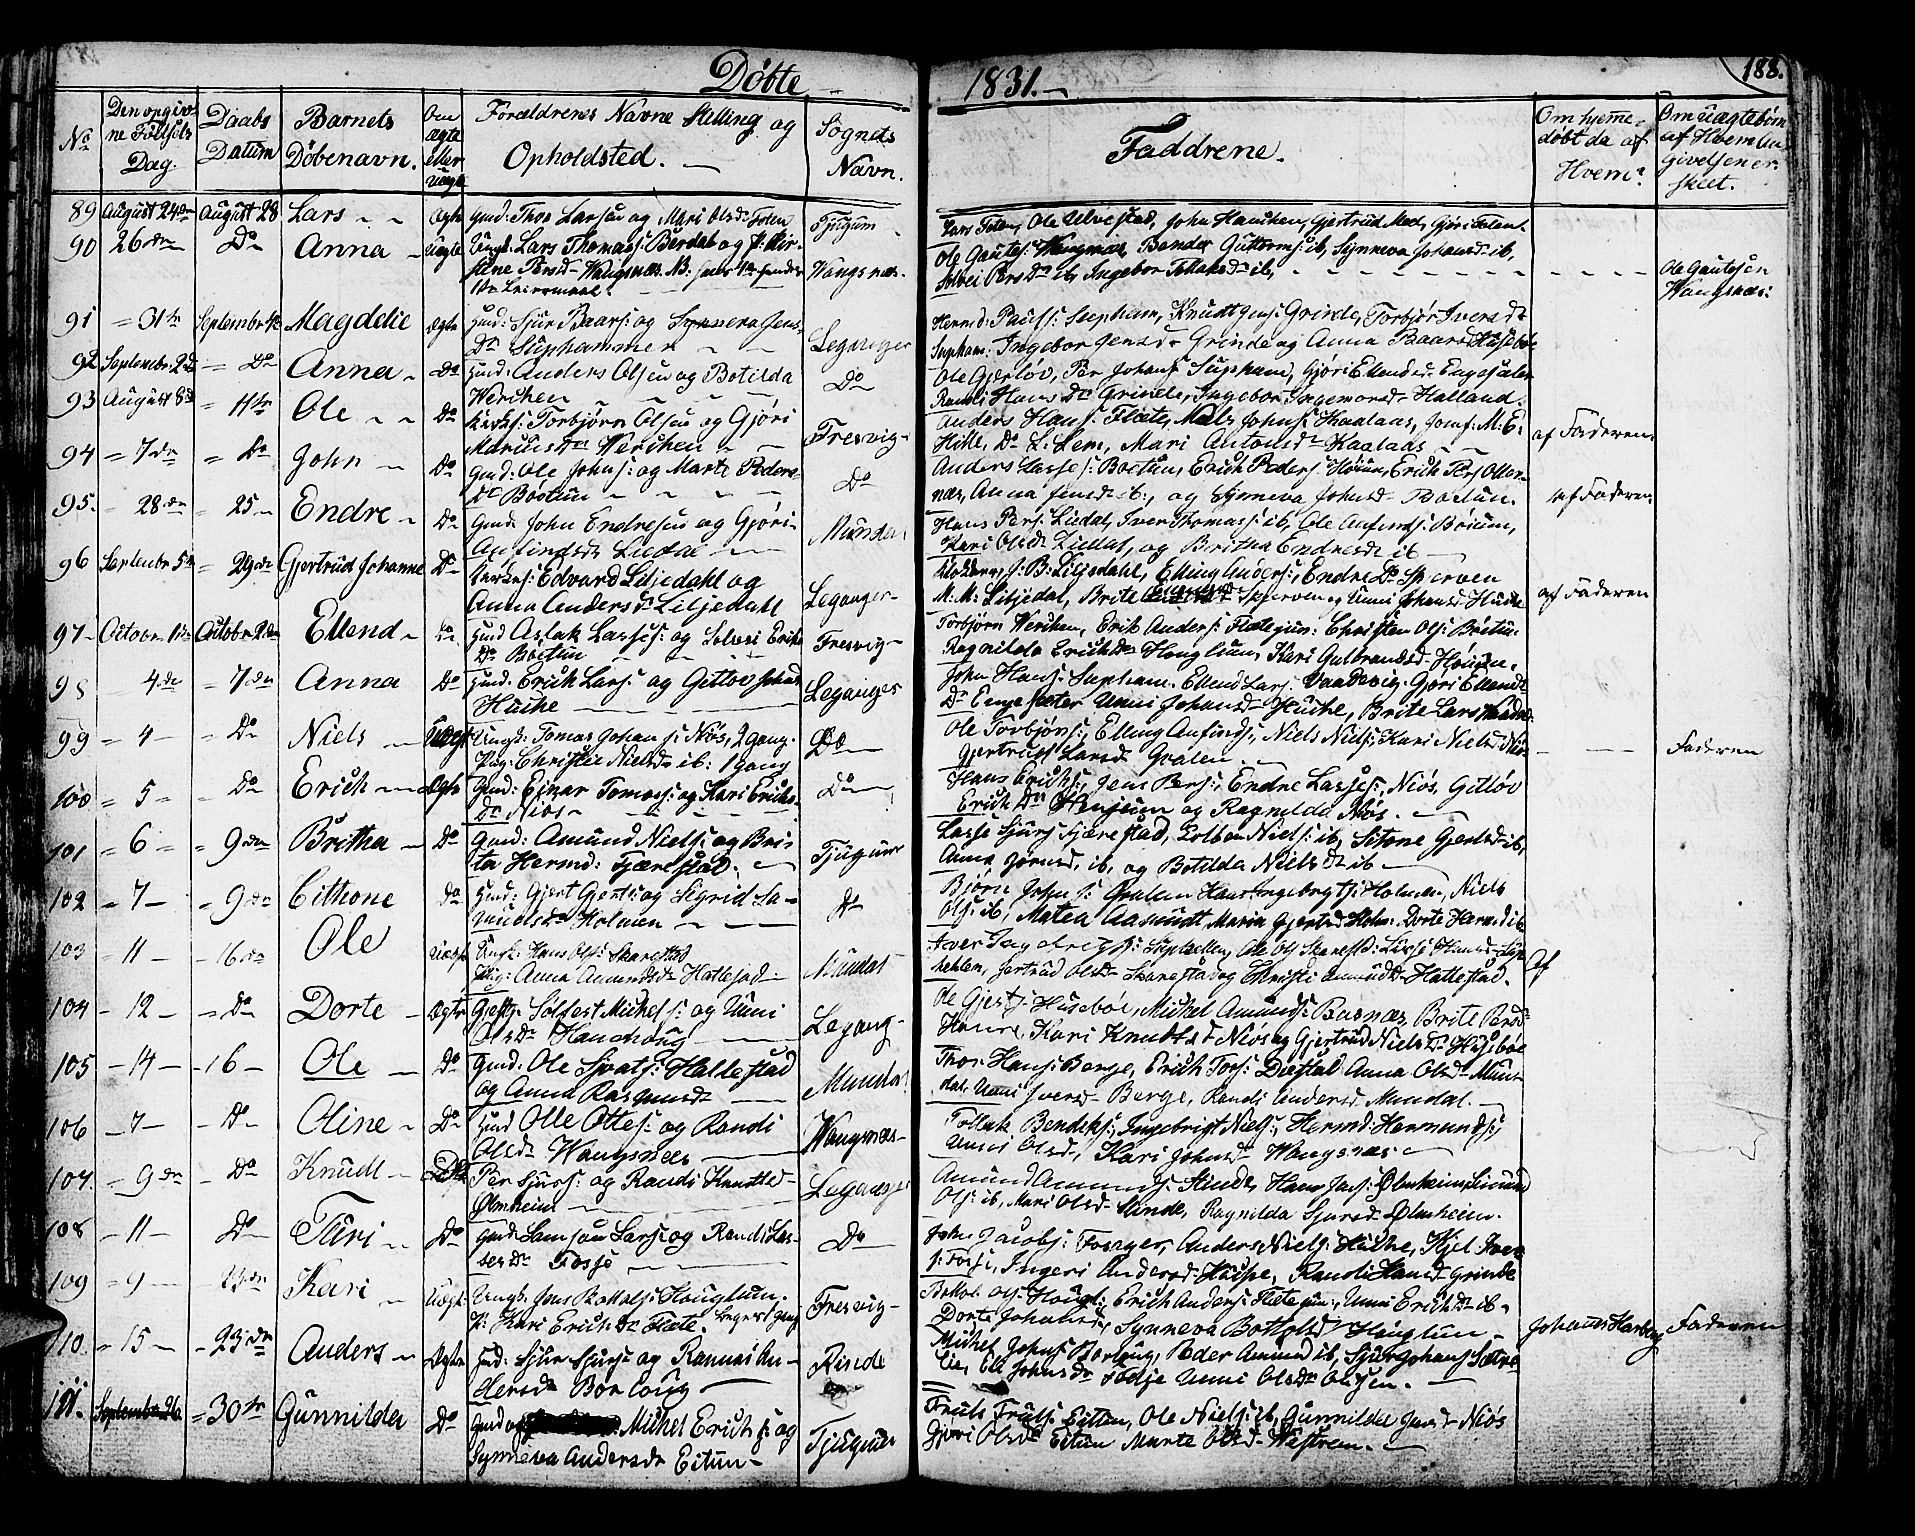 Døbte
1831.
188.
No
Den opgiv-
ne Fødsels
Dag.
Daabs
Datum
Barnets
Døbenavn.
Om
ægte
eller
uægte
Forældrenes Navne Stilling og
Opholdsted.
Sognets
Navn.
Faddrene.
Om hjemme-
døbt da af
Hvem?
Om uægtebørn
af Hvem An
givelsen er
skeet.
89 August 24de August 28 Lars Ægte Gmd: Thor Larsen og Mari Olsdr Tjugum
90 26de Do Anna Uægte Ungk: Lars Thomass: Berdal og P: Kir-
stine Persd Wangsnæs. Wangsnæs.
Ole Gautes: Wangnæs, Bendex Guttorms: ib, Synneva Johansd ib,
Solvei Persdr ib, Ingebor
Ole Gautesen
Wangsnæs:
91 31te Septembr 4de Magddlie Ægte Gmd: Sjur Baars: og Synneva Jens-
Dr Suphammer Leganger
Hermd: Pauls: Supham, Knudt Jens: Grinde, Torbjør Iversdr
Supham: Ingebor Jensd Grinde og Anna Baarsd Husebøe
92 Septembr 2de Do Anna Do Gmd: Anders Olsen og Botilda
Werihen Do
Ole Gjerløv, Per Johans: Supham, Gjøri Ellendsd Engesæter
Randi Hans Dr Grinde, Ingebor Ingemorsd Halland.
93 August 8de 11te Ole Do Torbjørn Olsen og Gjøri
Mariusdr Werihen Fresvig
Anders Hans: Flæte, Johns: Kaalaas,
Hille, Do L: Lem, Mari Antonsd Kaalaas
af Faderen
94 7de Do John Do Gmd: Ole Johns: og Marte Peders-
Dr Bøetun Do
Anders Lasses: Bøetun, Erich Peders:
Anna Jensd ib:, og Synneva Johnsd Bøetun.
95. 28de 25 Endre Do Gmd: John Endresen og Gjøri
Anfindsdr Liedal Mundal
Hans Pers: Liedal, Iver Thomass: ib, Ole Anfinds: Bøium,
Kari Olsdr Liedal, og Britha Endresdr ib
af Faderen
96 Septembr 5te 29de Gjertrud Johanne Do Edvard Liljedahl og
Anna Andersdr Liljedahl Leganger
Klokker, J: B: Liljedahl, Elling Anders:, Endre Do Skjerven
M: M: Liljedal, Brite Skjerven og Unni Johansd Husse
af Faderen
97 Octobr 1ste Octobr 2de Ellend Do Gmd Aslak Lasses: og Solvei Erichs
Dr Bøetun Fresvig
Torbjørn Werihen, Erik Anders: Flætejun: Christen Ols: Bøetun
Ragnilda Erichsdr Houglum, Kari Gulbrandsd Hougen.
98 4de 7de Anna Do Gmd: Erich Lars: og Gitløv Johansd
Husse Leganger
John Hans: Supham. Ellend Lars: Gjøri Ellends
Dr Engesæter Unni Johansd Husse, Brite Larsd
99 4 Do Niels Uægte Ungk: Tomas Johan s: Niøs, 2 gang.
Pig: Christie Nielsdr ib: 1 gang Do
Ole Torbjørs:, Elling Anfinds:, Niels Niels: Kari Nielsd Niøs
Gjertrud Larsd Qvalen
Faderen
100 5 Do Erich Ægte Gmd: Ejnar Tomass: og Kari Erichs-
Dr Niøs Do
Hans Erichs:, Jens Pers:, Endre Lasses:, Niøs, Gitløv
Erich Dr Stenjum og Ragnilda Niøs.
101 6 9de Britha Do Gmd: Amund Niels: og Bri-
ta Hermd: Fjærestad. Tjugum
Lasse Sjurs: Fjærestad, Niels: ib, Gjertsd ib,
Anna Jørnsd, ib, og Botilda Nielsdr ib
102 7 9de Cithone do Gmd: Gjert Gjerts: og Sigrid Sa-
muelsdr Holmen Do
Bjørn Johns: Qvalen Hans Ingebrigts: Holmen, Niels
Ols: ib, Matea Aasmundt, Maria Gjertsd Holm: Dorte Hansd ib
103 11 16de Ole Uægte Ungk: Hans Ols: Skarestad
Pig: Anna Amundsdr Hattestad Mundal
Iver Ingebrigts: Ole Ols: Skarestd:
Gertrud Olsdr Skarestad og Christi Amundsdr Hattestad.
af
104 12 Do Dorte Ægte Gjestg: Solfest Michels: og Unni
Olsdr Hanehoug Legang-
Ole Gjerts: Husebøe, Michel Amunds: Barsnæs, Brite Persdr
Henre, Kari Knudtsd Niøs og Gjertrud Nielsdr Husebøe
105 14 16 Ole Do Gmd: Ole Sjvats: Hattestad
og Anna Rasmusdr Mundal
Thor Hans: Berge, Erich Tors: Diestal Anna Olsdr Mun-
dal, Unni Iversd Berge, Randi Andersd Mundal.
106 7 Do Oline Do Gmd Olle Ottes: og Randi
Olsdr Wangsnæs Wangsnæs
Tollak Bendiks:, Ingebrigt Niels:, Hermd: Hermunds:,
Unni Olsd, Kari Johnsd Wangsnæs
107. 9de Do Knudt Do Per Sjurs: og Randi Knudts-
Ølmheim Leganger
Amund Amunds: Stinde, Hans Jens: Ølmheim,
Ols: ib, Mari Olsd Stinde, Ragnilda Sjursd Ølmheim.
108 11 Do Turi Do Gmd: Samson Lars: og Randi Las-
sesdr Fosse Do
John Jacobs: Anders Niels: Husse, Kjel Iver
s: Fosse, Ingeri Andersd Husse, Randi Hansd Grinde
109 9 23de Kari Uægte: Ungk: Jens Bottolfs: Houglum.
P: Kari Erichsdr Flæte. Fresvig
Bottol: Ols: Hougl:, Erich Anders: Flætejun:, Unni Erichsdr ib
Dorte Johansd, Synneva Bottolsd Houglum
Johans Harberg Faderen
110. 15 23de Anders Ægte Gmd: Sjur Sjurs: og Rannei An-
dersdr Borloug Rinde
Michel Johns: Borloug, Peder Amund ib, Sjur Johans: Sætre
Lie, Eli Johansdr Unni Olsdr
111. Septembr 26 30te Gunnilda Do Gmd Michel Erichs: og
Synneva Andersdr Eitun Tjugum
Truls Truls: Eitun, Ole Niels: ib, Gunnilda Jensd Niøs
Gjøri Olsdr Eitun Marte Olsd